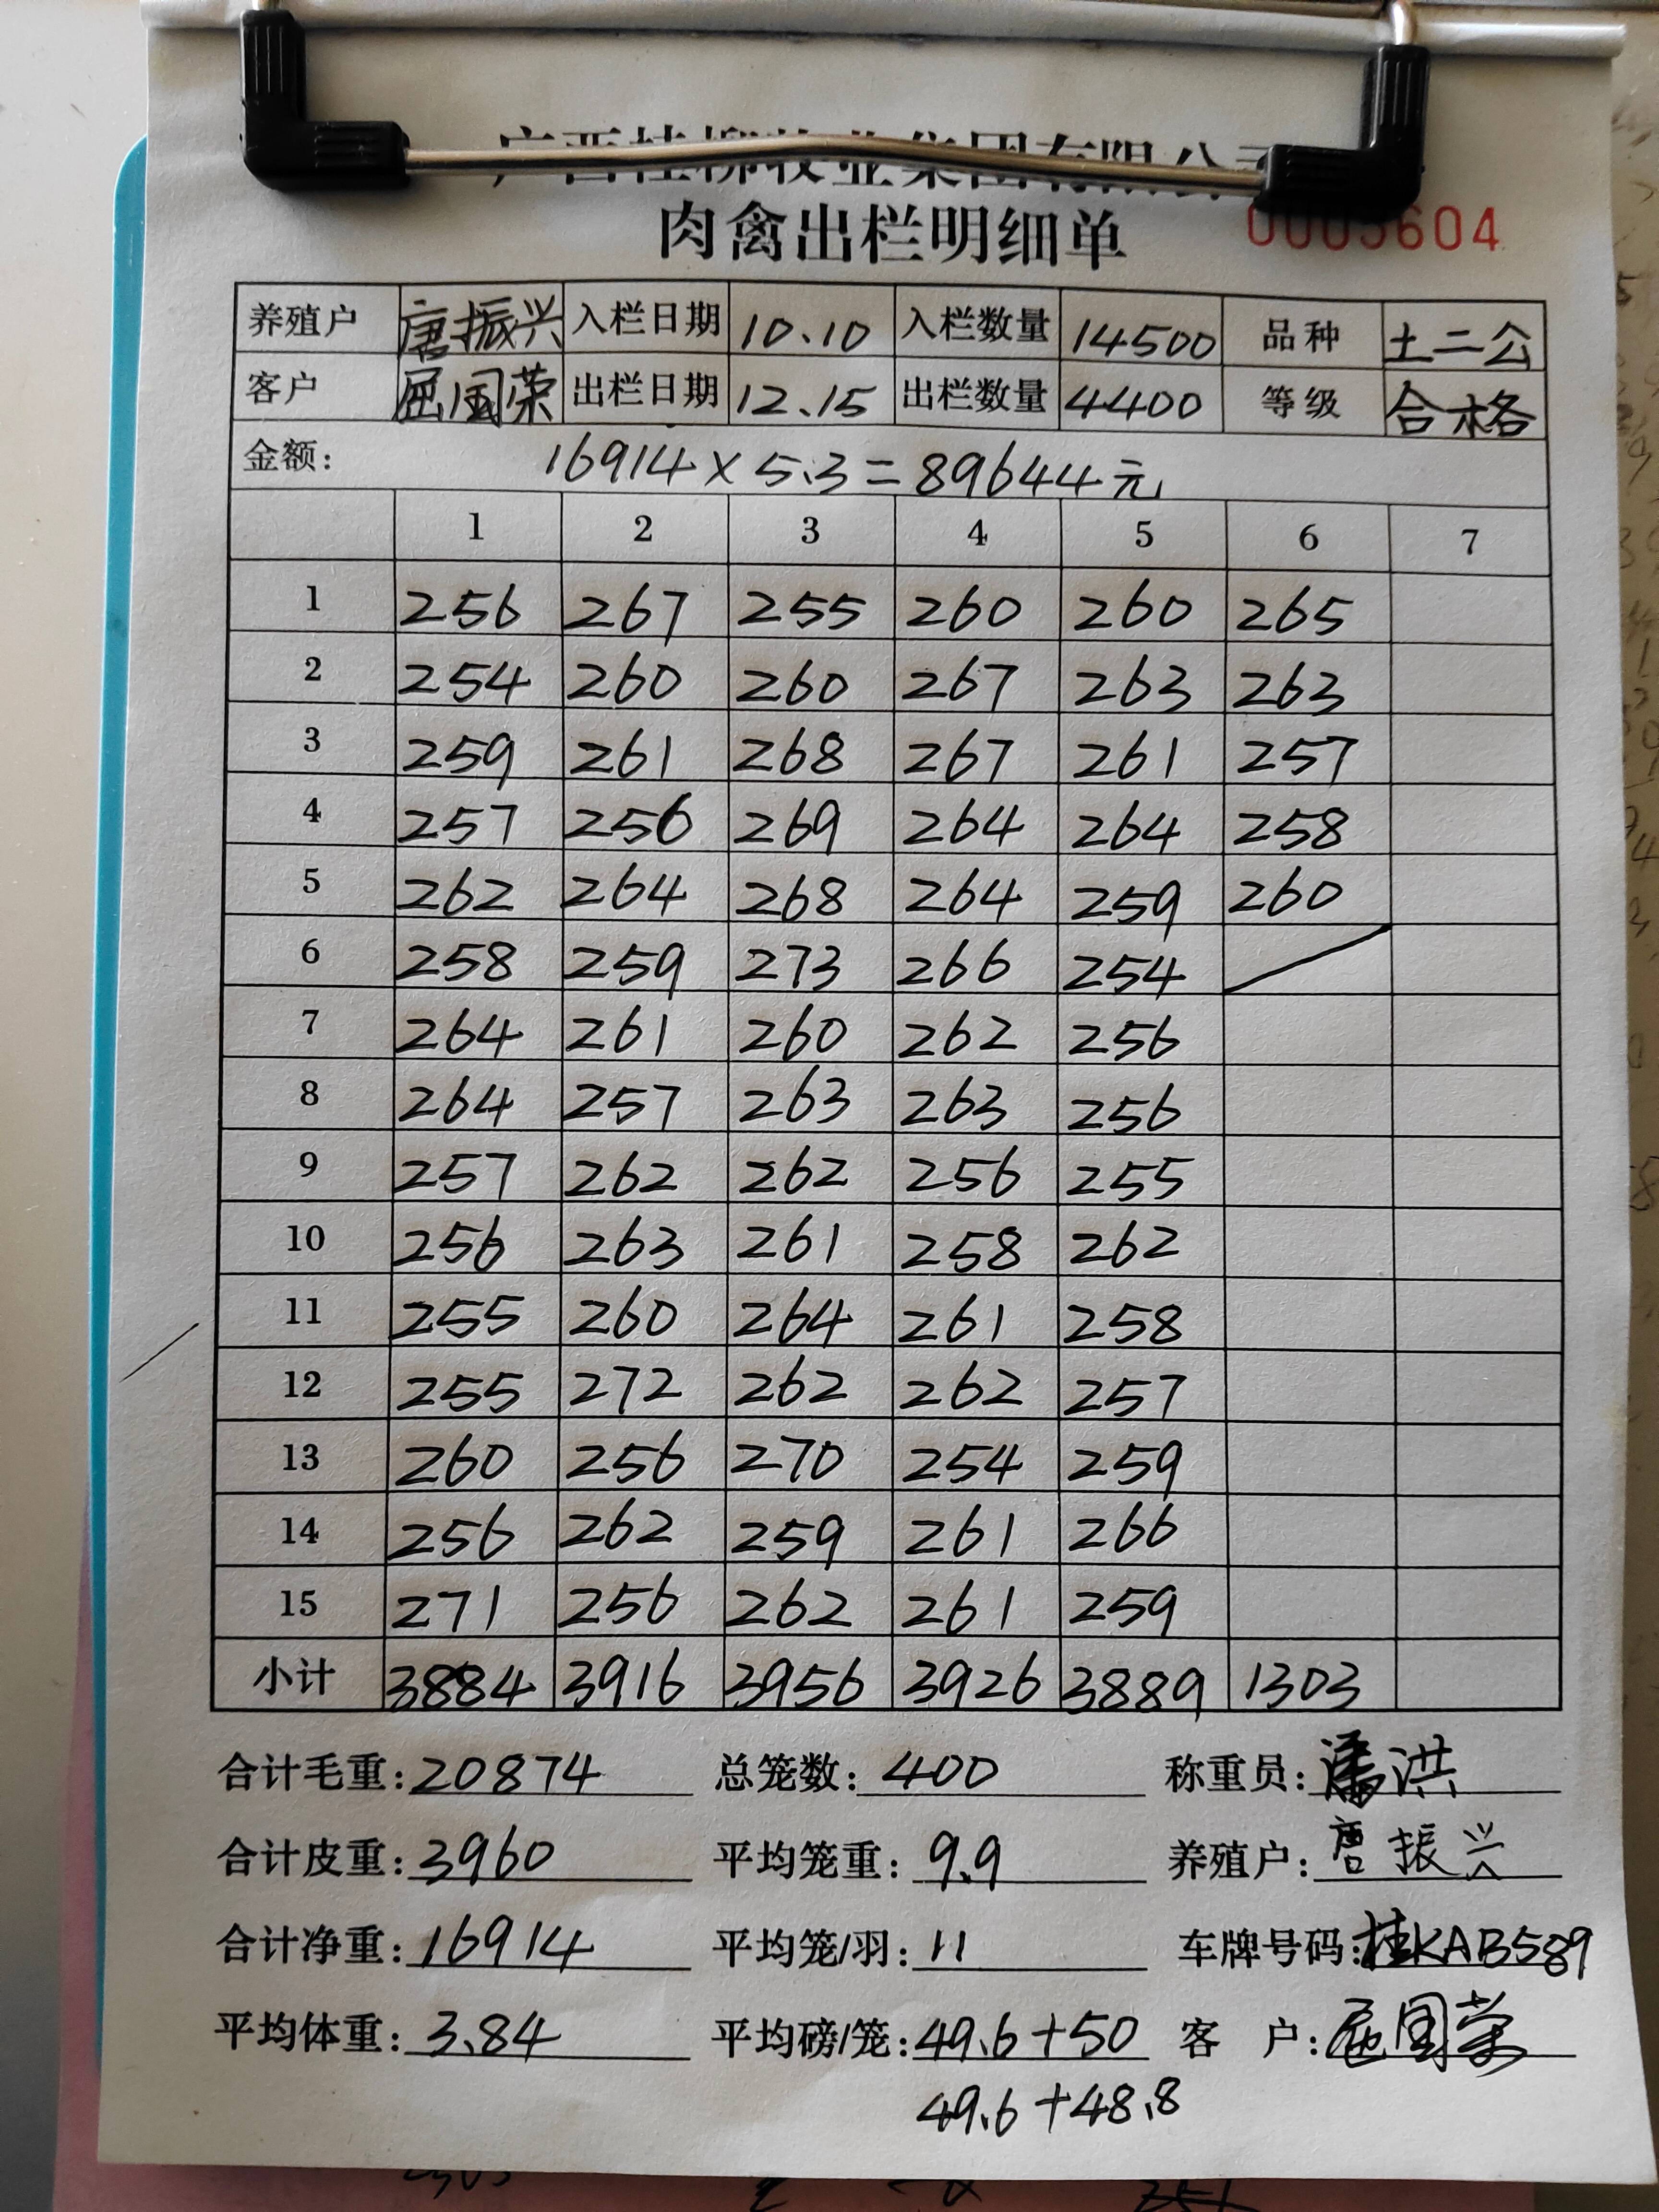 广西桂柳牧业集团有限公司
肉禽出栏明细单 0005604
养殖户 唐振兴 入栏日期 10.10 入栏数量 14500 品种 土二公
客户 屈国荣 出栏日期 12.15 出栏数量 4400 等级 合格
金额: 16914×5.3=89644元
1 2 3 4 5 6 7
1 256 267 255 260 260 265
2 254 260 260 267 263 263
3 259 261 268 267 261 257
4 257 256 269 264 264 258
5 262 264 268 264 259 260
6 258 259 273 266 254
7 264 261 260 262 256
8 264 257 263 263 256
9 257 262 262 256 255
10 256 263 261 258 262
11 255 260 264 261 258
12 255 272 262 262 257
13 260 256 270 254 259
14 256 262 259 261 266
15 271 256 262 261 259
小计 3884 3916 3956 3926 3889 1303
合计毛重: 20874 总笼数: 400 称重员: 潘洪
合计皮重: 3960 平均笼重: 9.9 养殖户: 唐振兴
合计净重: 16914 平均笼/羽: 11 车牌号码: 桂KAB589
平均体重: 3.84 平均磅/笼: 49.6+50 客户: 屈国荣
49.6+48.8